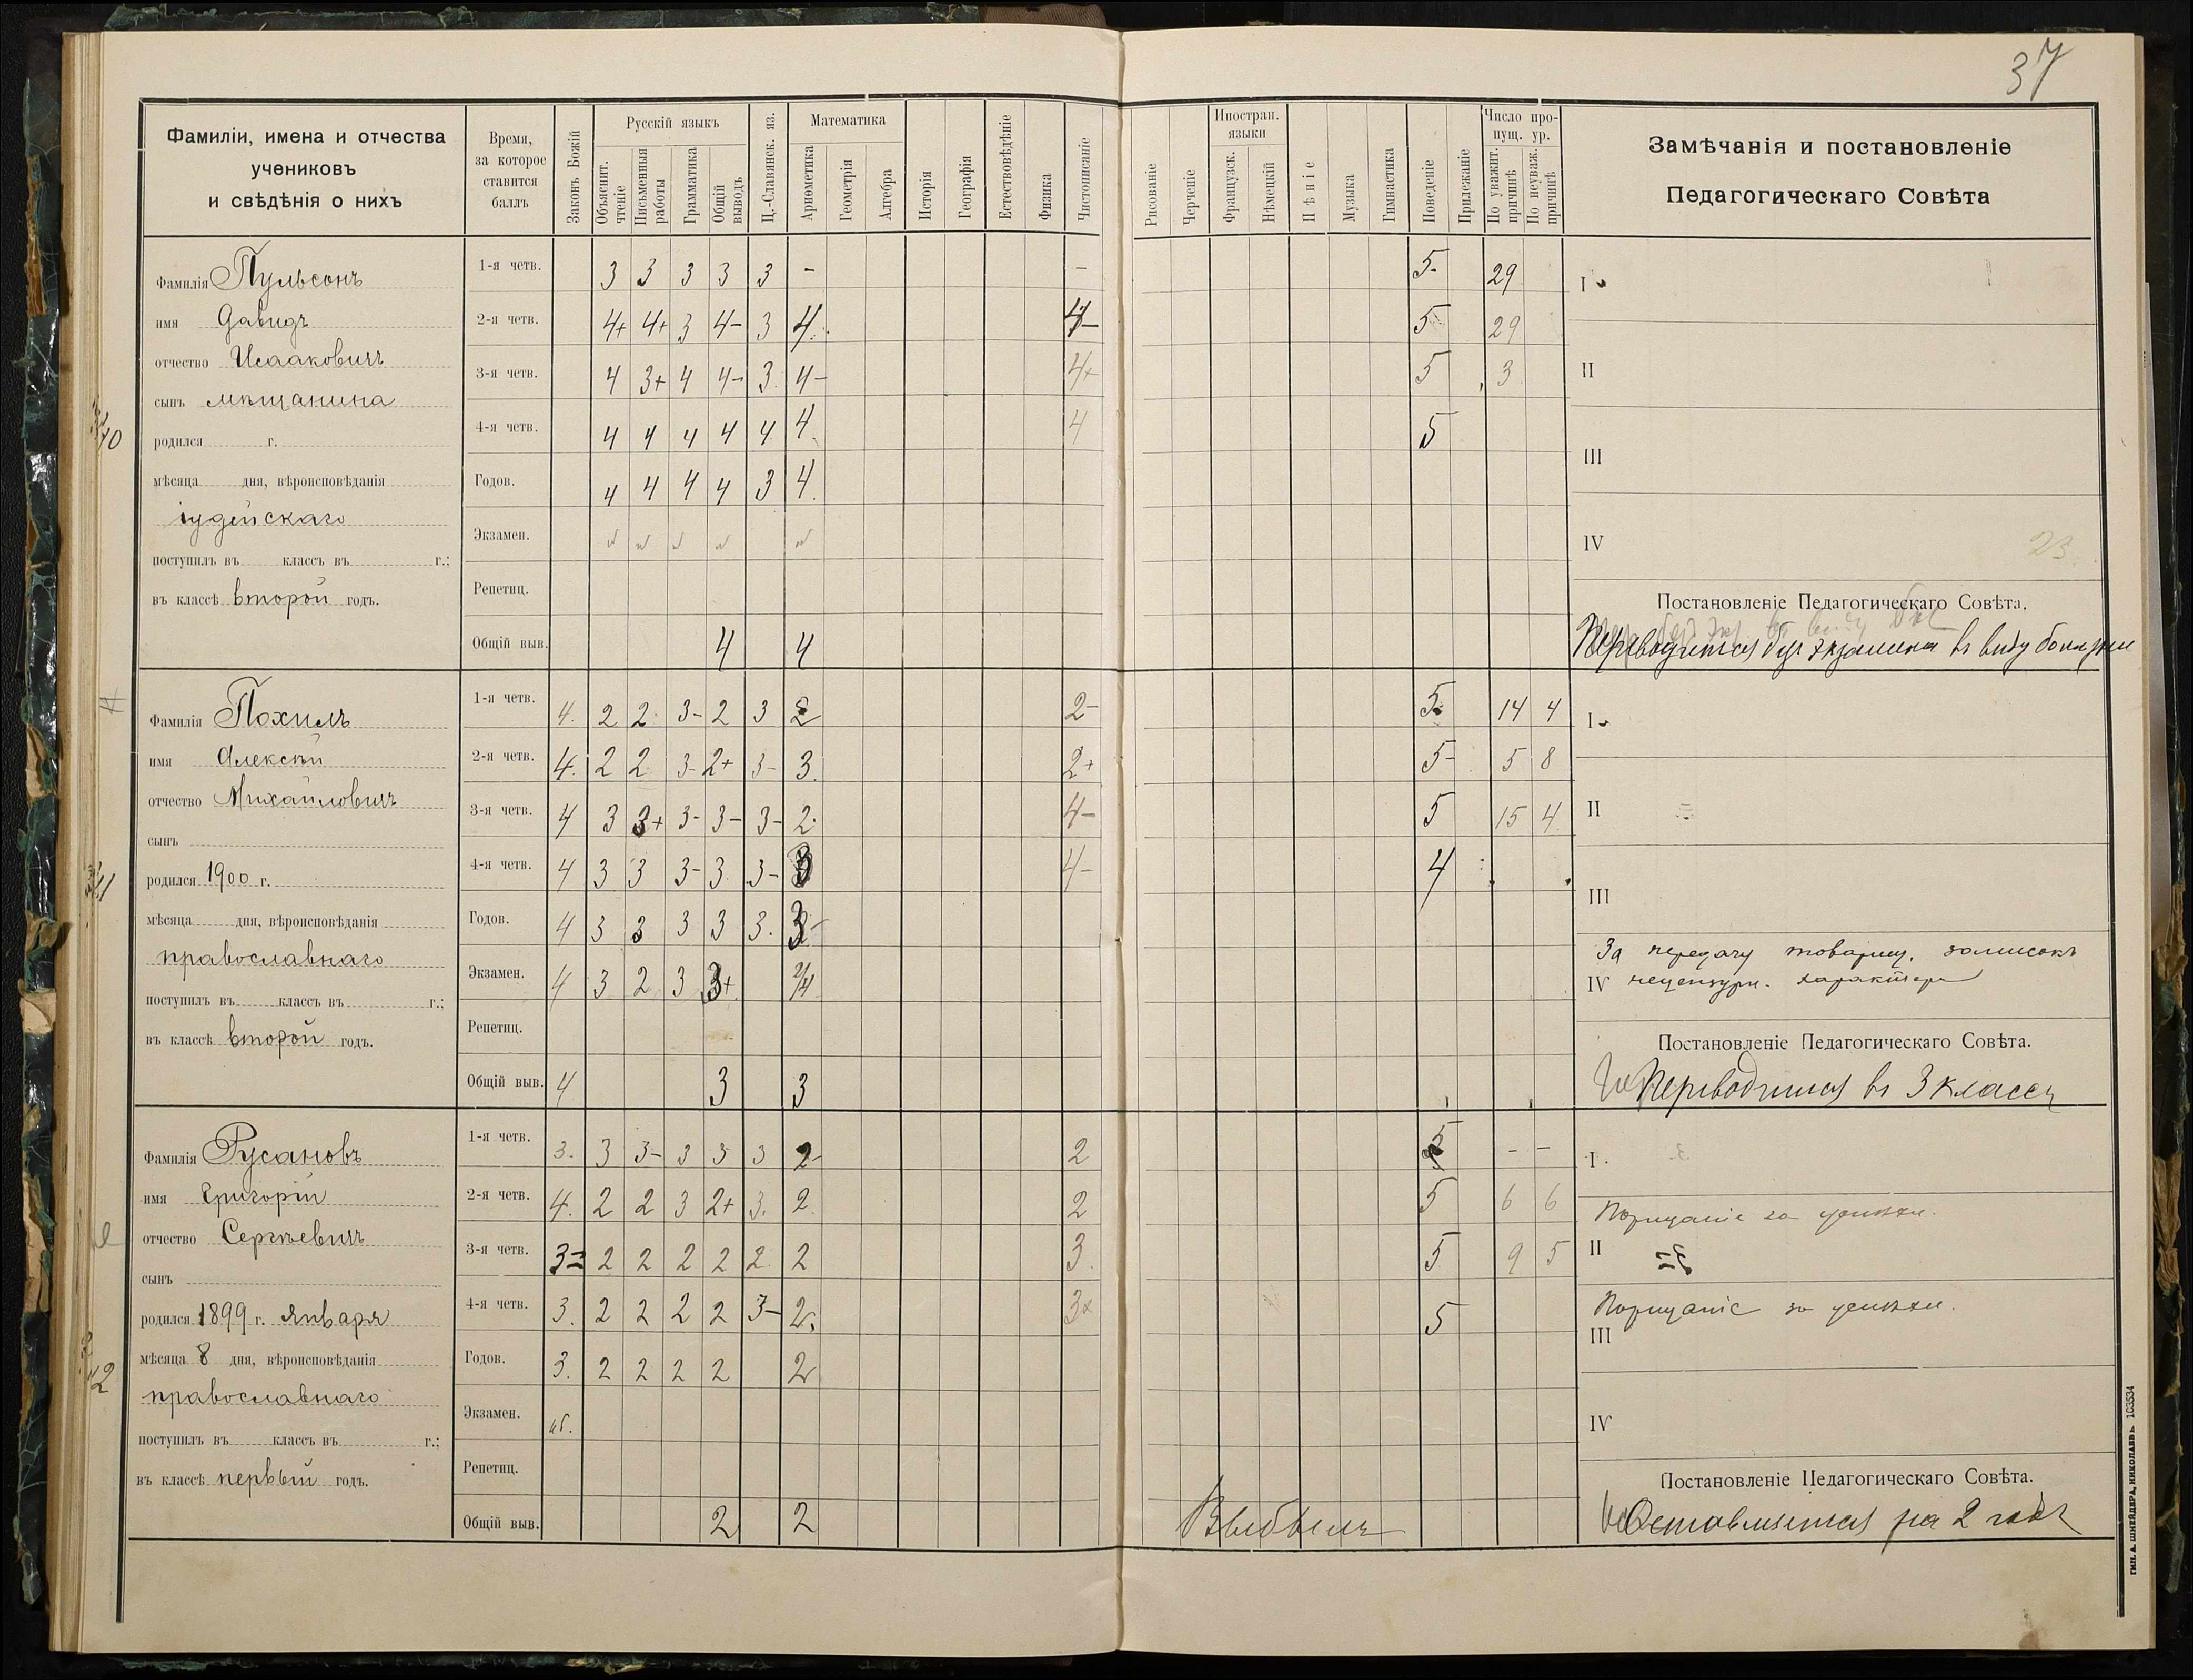 37
Фамиліи, имена и отчества
учениковъ
и свѣдѣнія о нихъ
Время,
за которое
ставится
баллъ
Законъ Божій
Русскій языкъ
Объяснит. чтеніе
Письменныя работы
Грамматика
Общій выводъ
Ц.-Славянск. яз.
Математика
Ариѳметика
Геометрія
Алгебра
Исторія
Географія
Естествовѣдѣніе
Физика
Чистописаніе
Рисованіе
Черченіе
Иностран. языки
Французск.
Нѣмецкій
Пѣніе
Музыка
Гимнастика
Поведеніе
Прилежаніе
Число пропущ. ур.
По уважит. причинѣ
По неуваж. причинѣ
Замѣчанія и постановленіе
Педагогическаго Совѣта
Фамилія Пульсонъ
имя Давидъ
отчество Исааковичъ
сынъ мѣщанина
родился г.
мѣсяца дня, вѣроисповѣданія
іудейскаго
поступилъ въ классъ въ г.;
въ классѣ второй годъ.
1-я четв. 3 3 3 3 3 - - 5- 29
2-я четв. 4+ 4+ 3 4- 3 4. 4- 5 29
3-я четв. 4 3+ 4 4- 3. 4- 4+ 5 3
4-я четв. 4 4 4 4 4 4. 4 5
Годов. 4 4 4 4 3 4.
Экзамен.
Репетиц.
Общій выв. 4 4
I
II
III
IV 23
Постановленіе Педагогическаго Совѣта.
Переводится безъ экзамена въ виду болѣзни
Фамилія Похилъ
имя Алексѣй
отчество Михайловичъ
сынъ
родился 1900 г.
мѣсяца дня, вѣроисповѣданія
православнаго
поступилъ въ классъ въ г.;
въ классѣ второй годъ.
1-я четв. 4. 2 2 3- 2 3 2 2- 5 14 4
2-я четв. 4. 2 2 3- 2+ 3- 3. 2+ 5- 5 8
3-я четв. 4 3 3+ 3- 3- 3- 2. 4- 5 15 4
4-я четв. 4 3 3 3- 3. 3- 3 4- 4
Годов. 4 3 3 3 3 3. 3
Экзамен. 4 3 2 3 3+ 2/4
Репетиц.
Общій выв. 4 3 3
I
II
III
За передачу товарищ. записокъ
IV нецензурн. характера
Постановленіе Педагогическаго Совѣта.
Переводится въ 3 классъ
Фамилія Русановъ
имя Григорій
отчество Сергѣевичъ
сынъ
родился 1899 г. Января
мѣсяца 8 дня, вѣроисповѣданія
православнаго
поступилъ въ классъ въ г.;
въ классѣ первый годъ.
1-я четв. 3. 3 3- 3 3 3 2- 2 5 - -
2-я четв. 4. 2 2 3 2+ 3. 2 2 5 6 6
3-я четв. 3= 2 2 2 2 2 2 3. 5 9 5
4-я четв. 3. 2 2 2 2 3- 2. 3+ 5
Годов. 3. 2 2 2 2 2
Экзамен.
Репетиц.
Общій выв. 2 2
Выбылъ
I
Порицаніе за успѣхи.
II
Порицаніе за успѣхи.
III
IV
Постановленіе Педагогическаго Совѣта.
Оставляется на 2 годъ
ТИП. А. ШНЕЙДЕРА, НИКОЛАЕВЪ. 103534